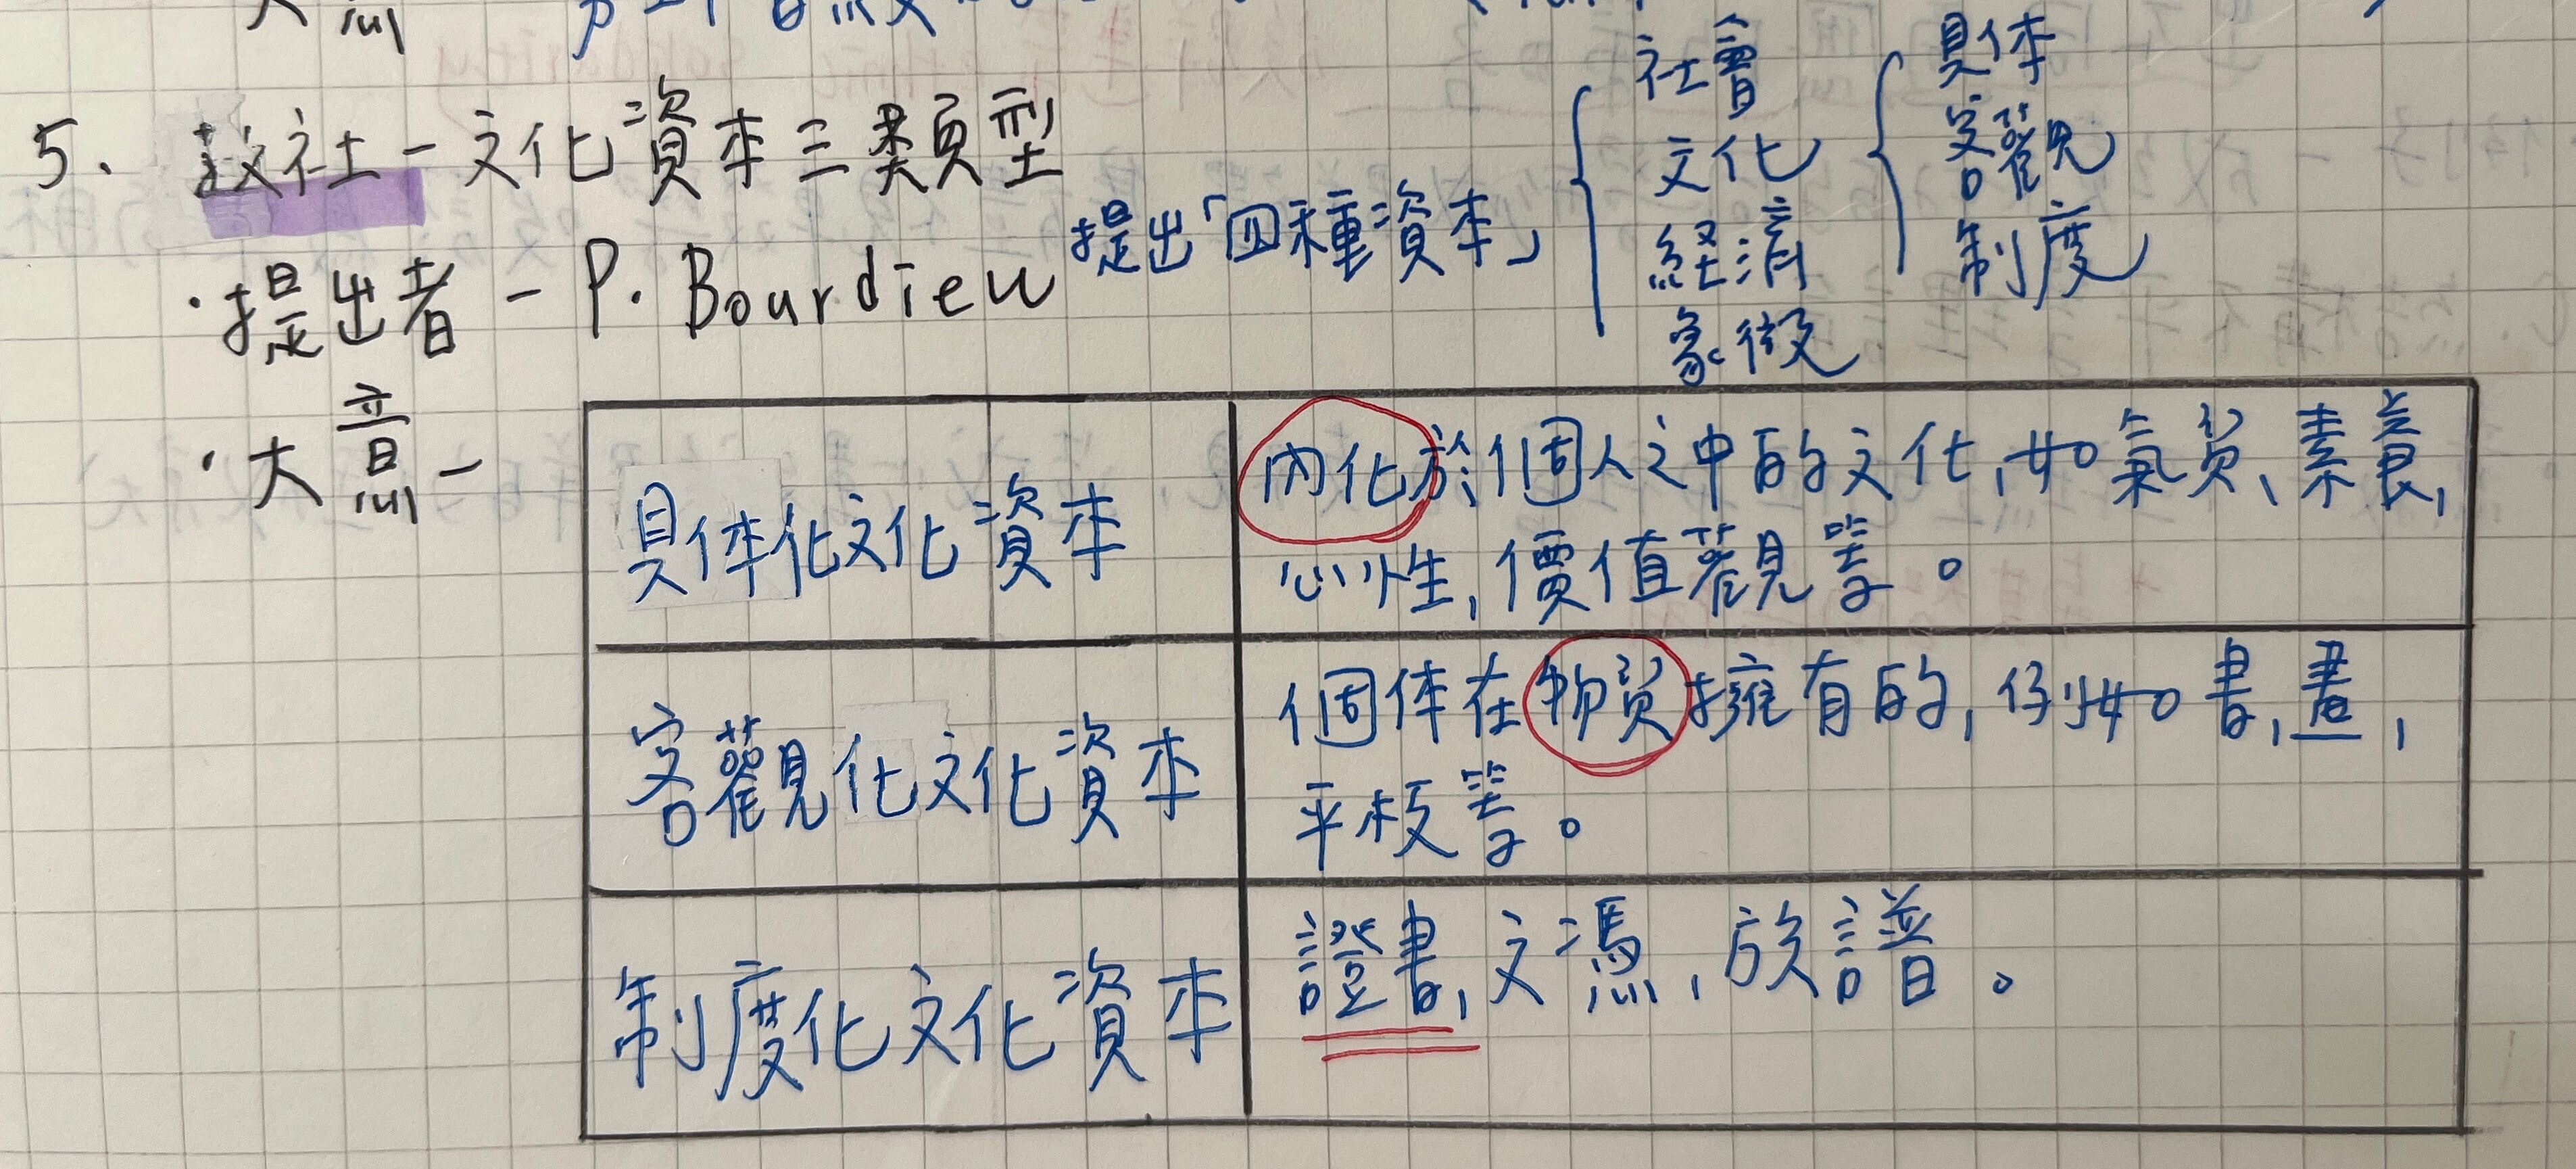 5. 教社-文化資本三類型
·提出者-P. Bourdieu 提出「四種資本」
社會
文化
経濟
象徵
具体
客觀
制度
·大意-
具体化文化資本
內化於個人之中的文化,如氣质、素養,
心性,價值觀等。
客觀化文化資本
個体在物质擁有的,例如書,畫,
平板等。
制度化文化資本
證書,文憑,族譜。